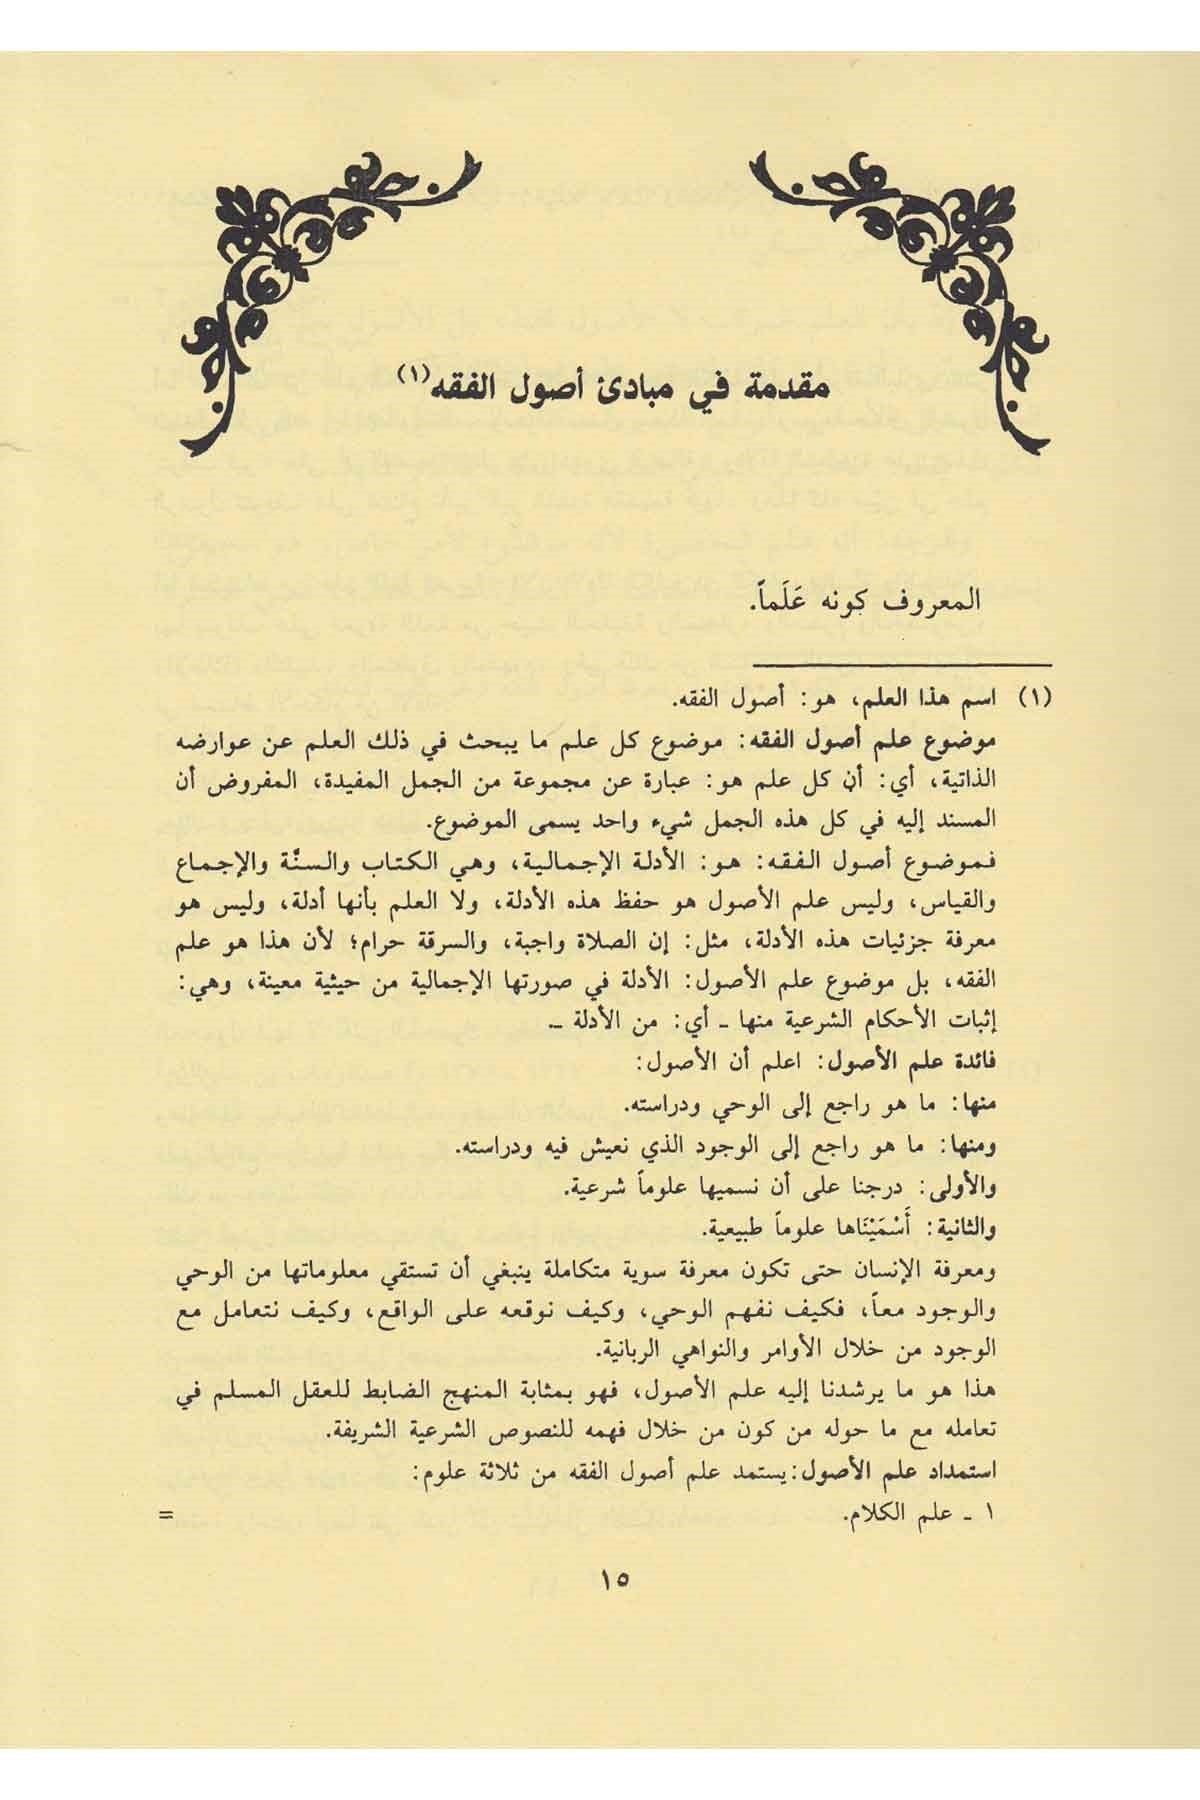 مقدمة في مبادئ أصول الفقه(١)
المعروف كونه عَلَماً.
(١) اسم هذا العلم، هو: أصول الفقه.
موضوع علم أصول الفقه: موضوع كل علم ما يبحث في ذلك العلم عن عوارضه
الذاتية، أي: أن كل علم هو: عبارة عن مجموعة من الجمل المفيدة، المفروض أن
المسند إليه في كل هذه الجمل شيء واحد يسمى الموضوع.
فموضوع أصول الفقه: هو: الأدلة الإجمالية، وهي الكتاب والسنَّة والإجماع
والقياس، وليس علم الأصول هو حفظ هذه الأدلة، ولا العلم بأنها أدلة، وليس هو
معرفة جزئيات هذه الأدلة، مثل: إن الصلاة واجبة، والسرقة حرام؛ لأن هذا هو علم
الفقه، بل موضوع علم الأصول: الأدلة في صورتها الإجمالية من حيثية معينة، وهي:
إثبات الأحكام الشرعية منها ـ أي: من الأدلة ـ.
فائدة علم الأصول: اعلم أن الأصول:
منها: ما هو راجع إلى الوحي ودراسته.
ومنها: ما هو راجع إلى الوجود الذي نعيش فيه ودراسته.
والأولى: درجنا على أن نسميها علوماً شرعية.
والثانية: أَسْمَيْنَاها علوماً طبيعية.
ومعرفة الإنسان حتى تكون معرفة سوية متكاملة ينبغي أن تستقي معلوماتها من الوحي
والوجود معاً، فكيف نفهم الوحي، وكيف نوقعه على الواقع، وكيف نتعامل مع
الوجود من خلال الأوامر والنواهي الربانية.
هذا هو ما يرشدنا إليه علم الأصول، فهو بمثابة المنهج الضابط للعقل المسلم في
تعامله مع ما حوله من كون من خلال فهمه للنصوص الشرعية الشريفة.
استمداد علم الأصول: يستمد علم أصول الفقه من ثلاثة علوم:
١ ـ علم الكلام. =
١٥